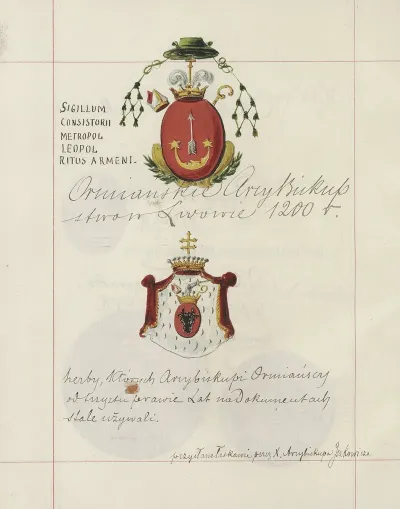 SIGILLUM
CONSISTORII
METROPOL
LEOPOL
RITUS ARMENI.
Ormiańskie Arcy Biskup
stwo w Lwowie 1200 r.
herby, których Arcybiskupi Ormiańscy
od trzystu prawie Lat na Dokumentach
stale używali.
przysłane łaskawie przez X, Arcybiskupa